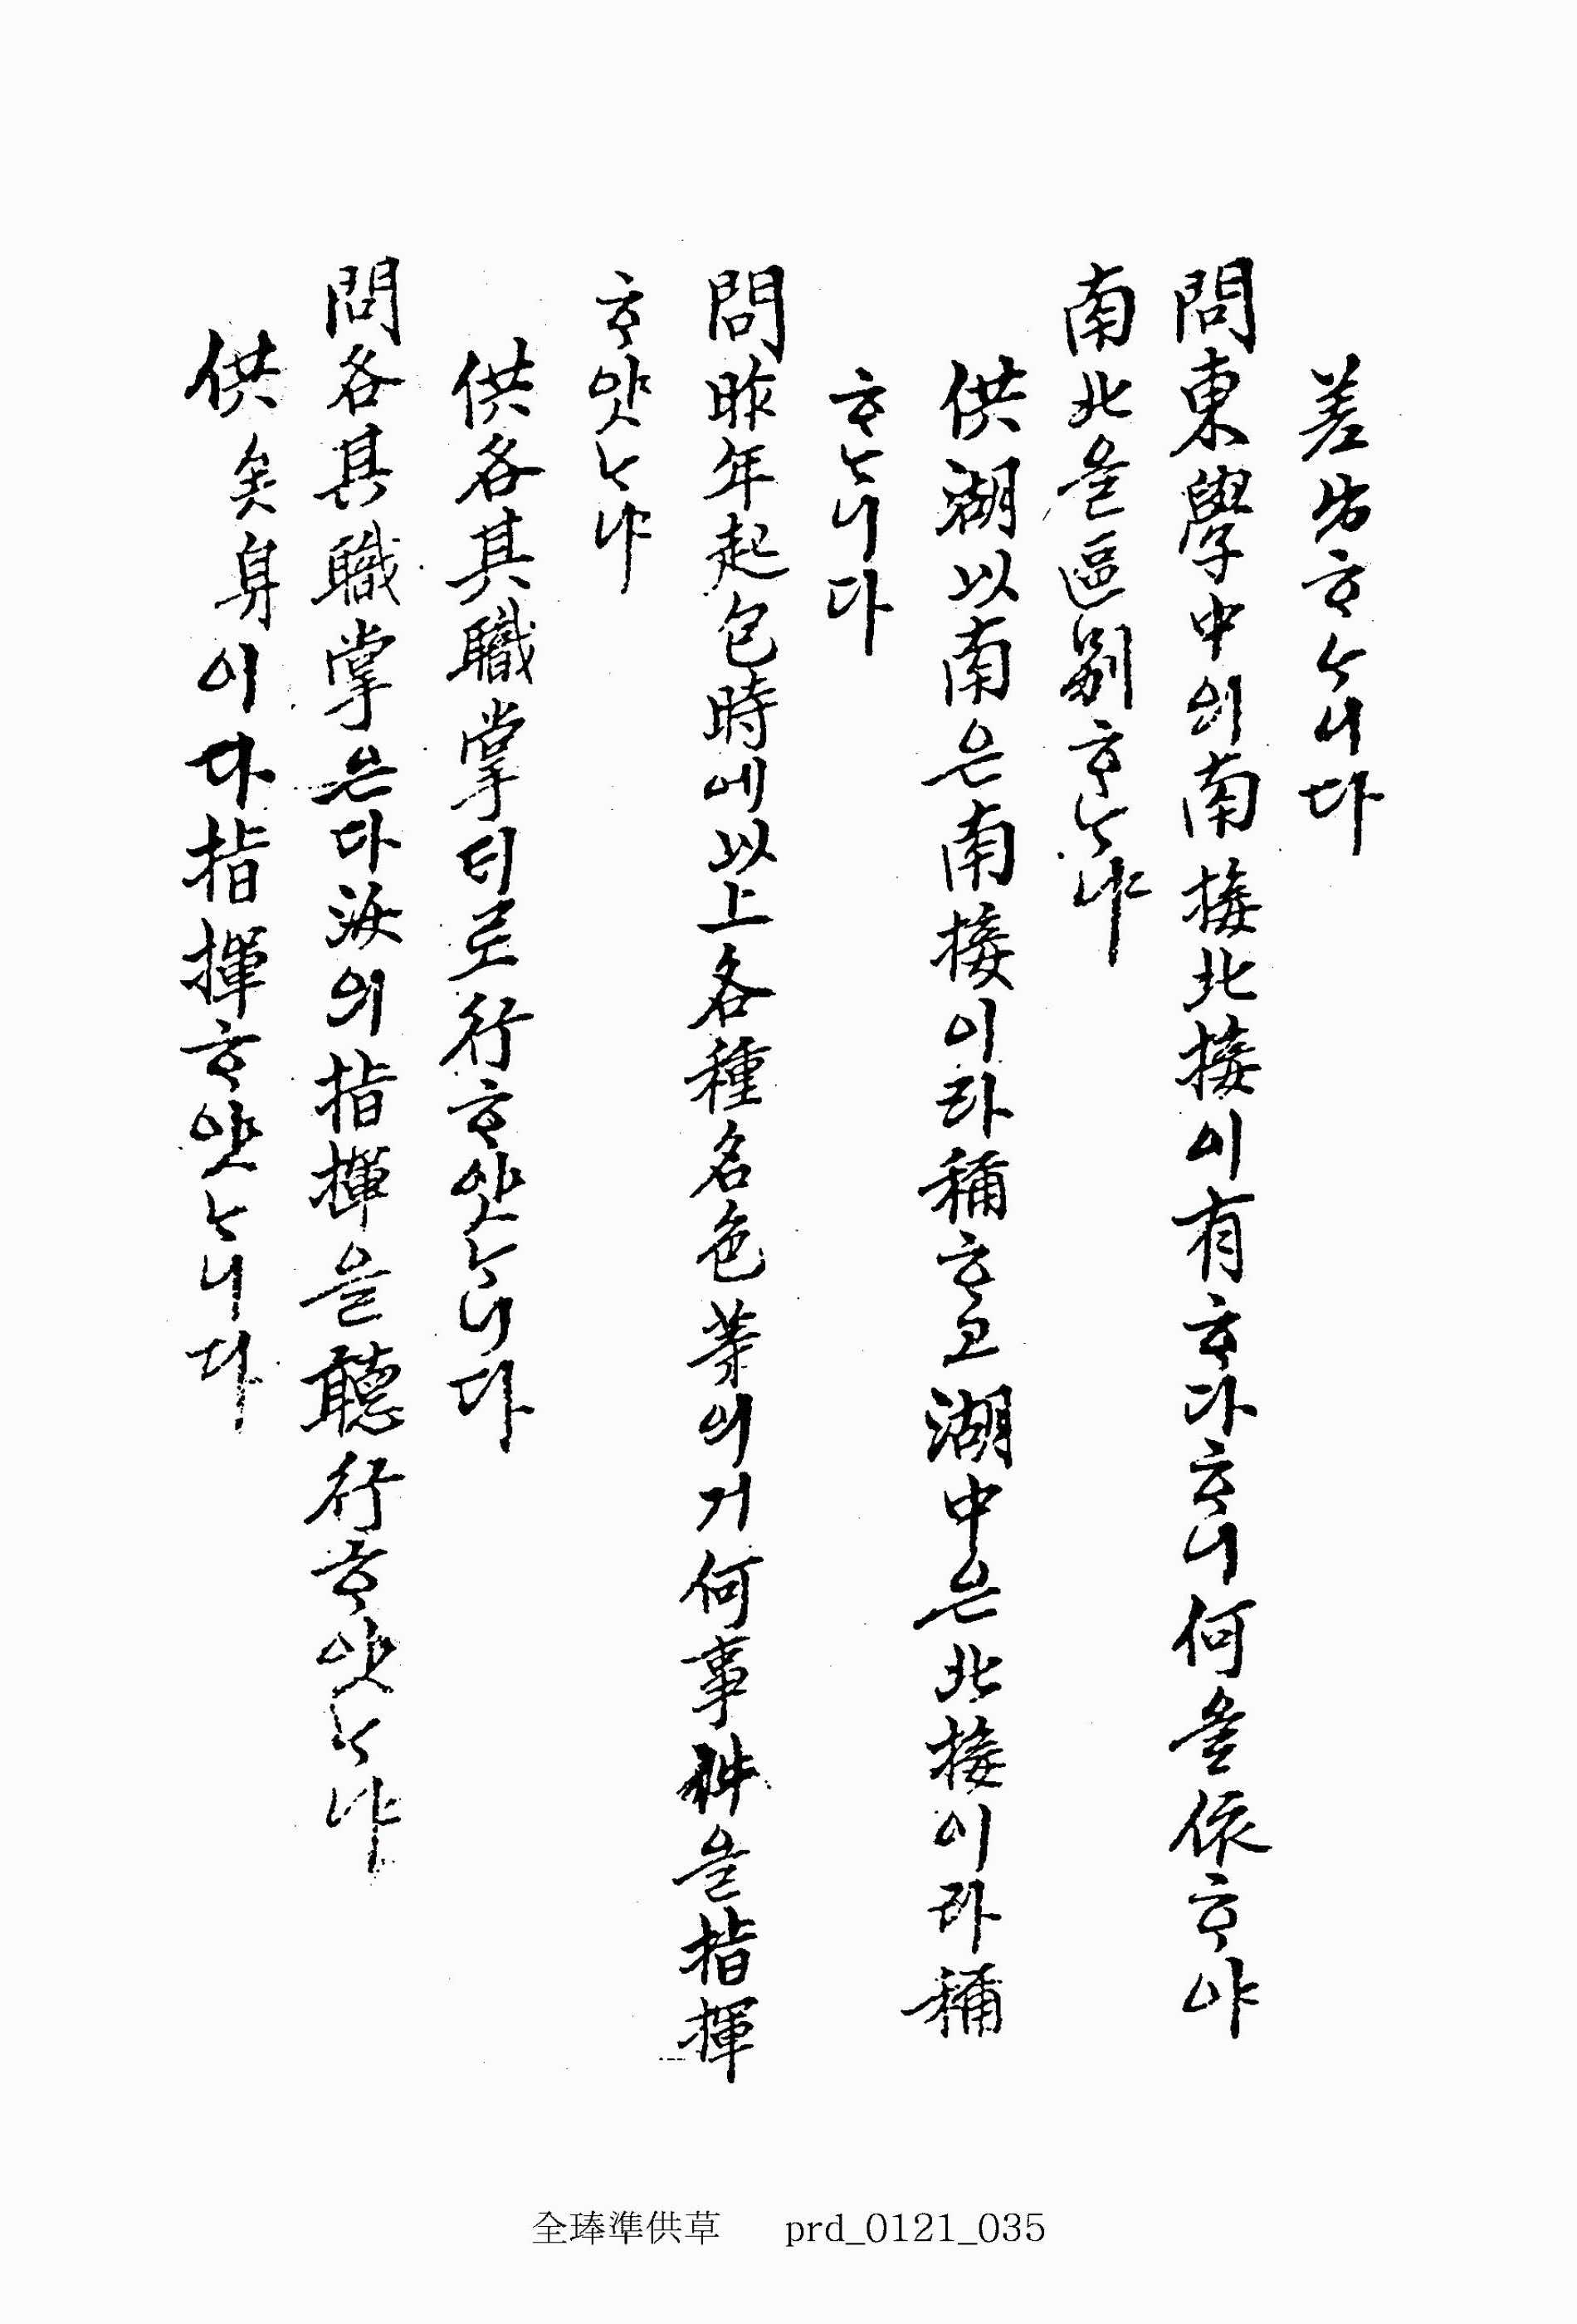 差出ᄒᆞᄂᆞ니다
問東學中의南接北接이有ᄒᆞ다ᄒᆞ니何을依ᄒᆞ야
南北을區別ᄒᆞᄂᆞ냐
供湖以南은南接이라稱ᄒᆞ고湖中은北接이라稱
ᄒᆞᄂᆞ니다
問昨年起包時에以上各種名色等의거何事件을指揮
ᄒᆞ얏ᄂᆞ냐
供各其職掌ᄃᆡ로行ᄒᆞ얏ᄂᆞ니다
問各其職掌은다汝의指揮을聽行ᄒᆞ얏ᄂᆞ냐
供矣身이다指揮ᄒᆞ얏ᄂᆞ니다
全琫準供草 prd_0121_035